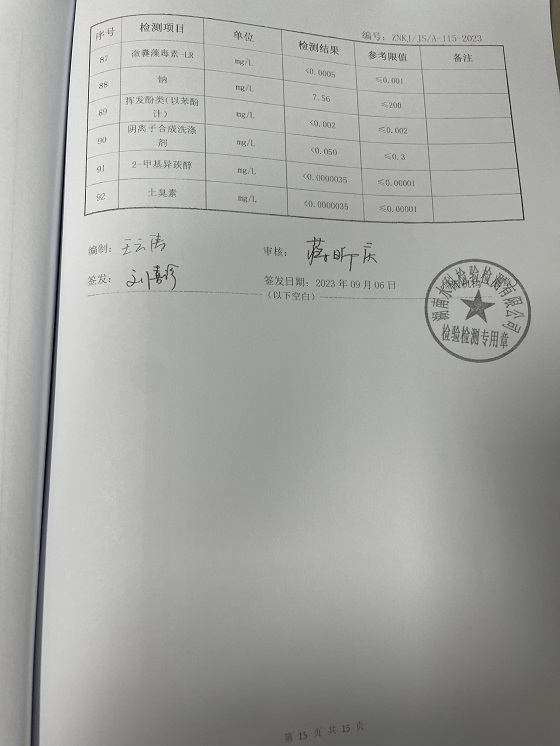 编号：ZNKJ/JS/A-115-2023
序号 检测项目 单位 检测结果 参考限值 备注
87 微囊藻毒素-LR mg/L <0.0005 ≤0.001
88 钠 mg/L 7.56 ≤200
89 挥发酚类(以苯酚计) mg/L <0.002 ≤0.002
90 阴离子合成洗涤剂 mg/L <0.050 ≤0.3
91 2-甲基异莰醇 mg/L <0.0000035 ≤0.00001
92 土臭素 mg/L <0.0000035 ≤0.00001
编制： 审核：
签发： 签发日期：2023 年 09 月 06 日
（以下空白）
检验检测有限公司
检验检测专用章
第 15 页 共 15 页